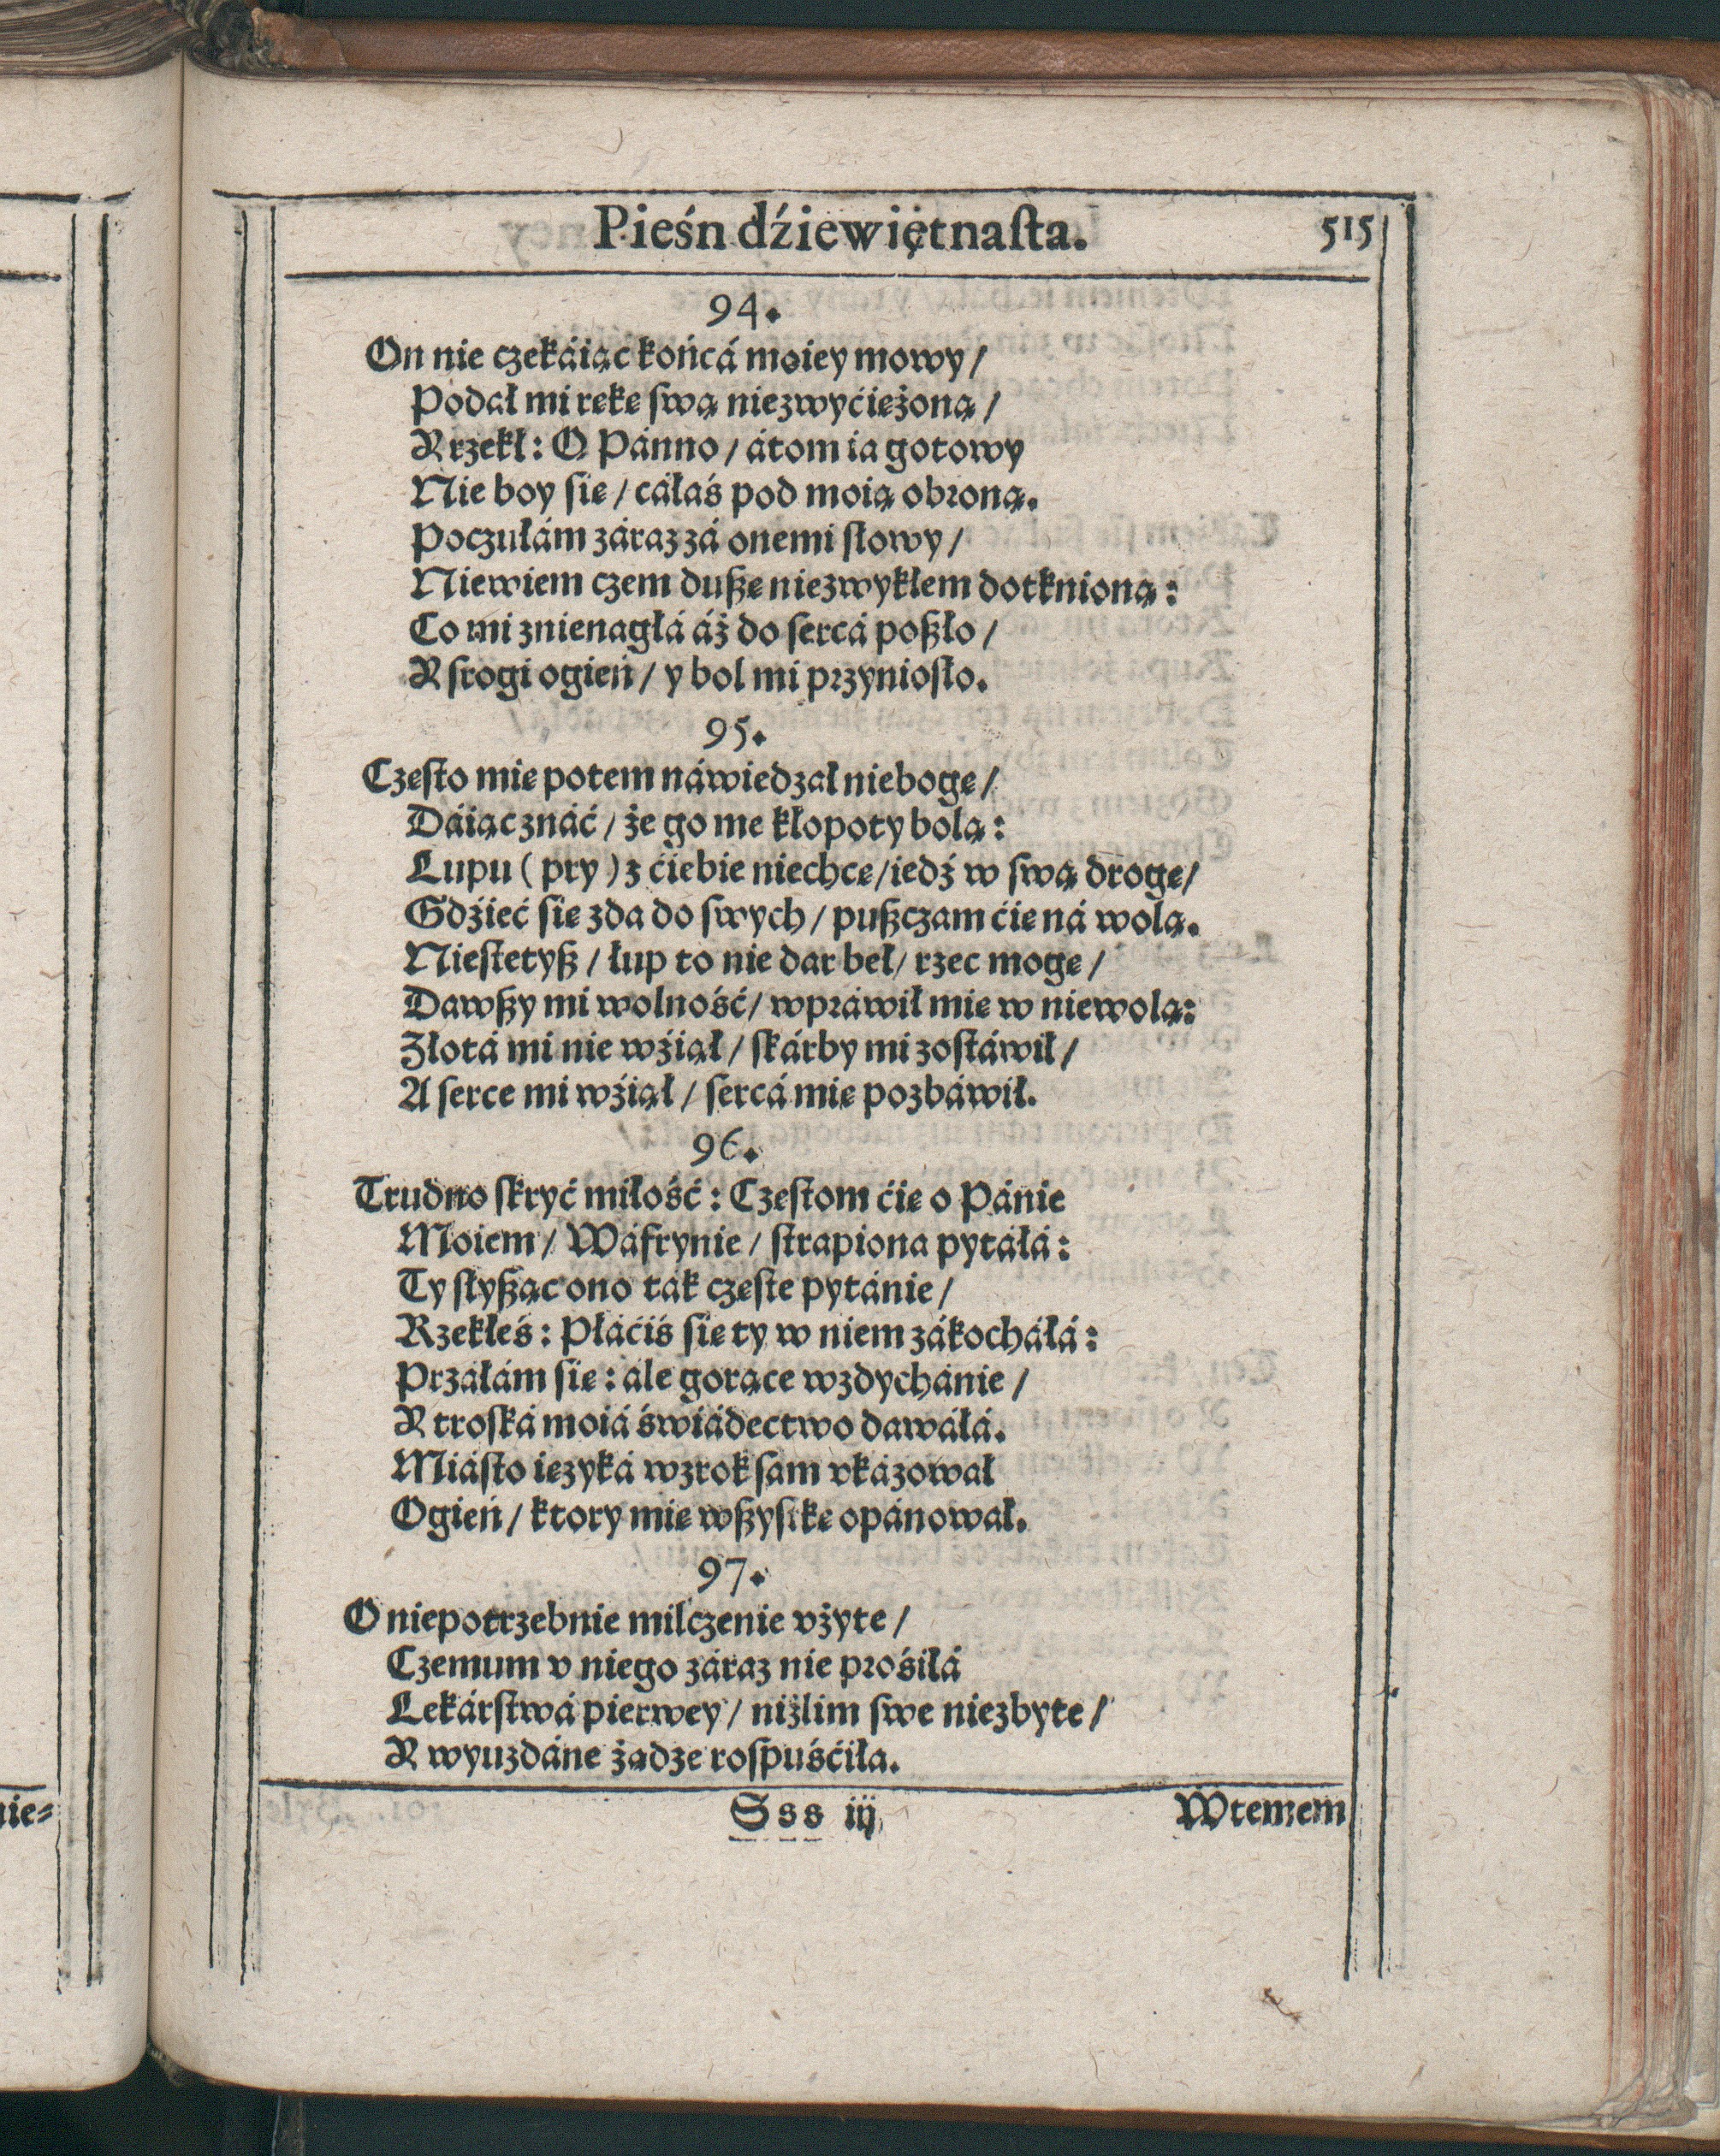 Pieśn dźiewiętnaſta. 515
94.
On nie czekáiąc końcá moiey mowy/
Podał mi rękę ſwą niezwyćiężoną/
Y rzekł: O Pánno/ átom ia gotowy
Nie boy ſię/ cáłáś pod moią obroną.
Poczułám záraz zá onemi ſłowy/
Niewiem czem duſzę niezwykłem dotknioną:
Co mi znienagłá áż do ſercá poſzło/
Y ſrogi ogień/ y bol mi przynioſło.
95.
Częſto mię potem náwiedzał niebogę/
Dáiąc znáć/ że go me kłopoty bolą:
Lupu (pry) z ćiebie niechcę/ iedź w ſwą drogę/
Gdźieć ſię zda do ſwych/ puſzczam ćię ná wolą.
Nieſtetyſz/ łup to nie dar beł/ rzec mogę/
Dawſzy mi wolność/ wpráwił mię w niewolą:
Złotá mi nie wźiął/ ſkárby mi zoſtáwił/
A ſerce mi wźiął/ ſercá mię pozbáwił.
96.
Trudno ſkryć miłość: Częſtom ćię o Pánie
Moiem/ Wáfrynie/ ſtrapiona pytáłá:
Ty ſłyſząc ono ták częſte pytánie/
Rzekłeś: Płáćiś ſię ty w niem zákocháłá:
Przáłám ſię: ale gorące wzdychánie/
Y troſká moiá świádectwo dawáłá.
Miáſto ięzyká wzrok ſam vkázował
Ogień/ ktory mię wſzyſtkę opánował.
97.
O niepotrzebnie milczenie vżyte/
Czemum v niego záraz nie prośiłá
Lekárſtwá pierwey/ niżlim ſwe niezbyte/
Y wyuzdáne żądze roſpuśćiła.
nie-
Sss iij
Wtemem